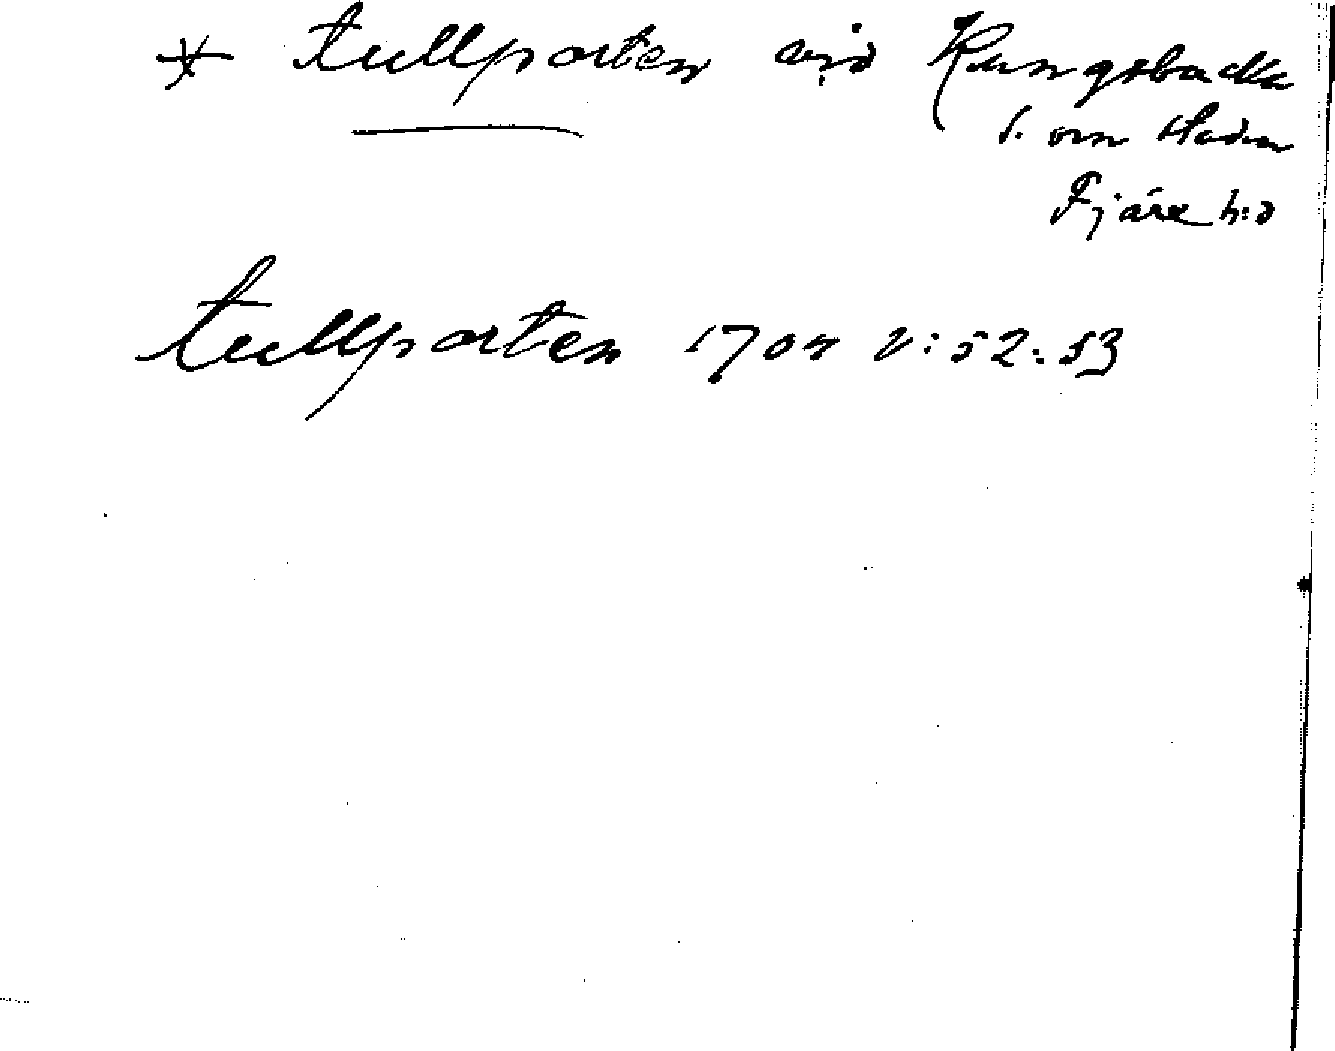 * tullporten vid Kungsbacka
S. om staden
Fjäre h:d
tullporten 1704 V:52:53